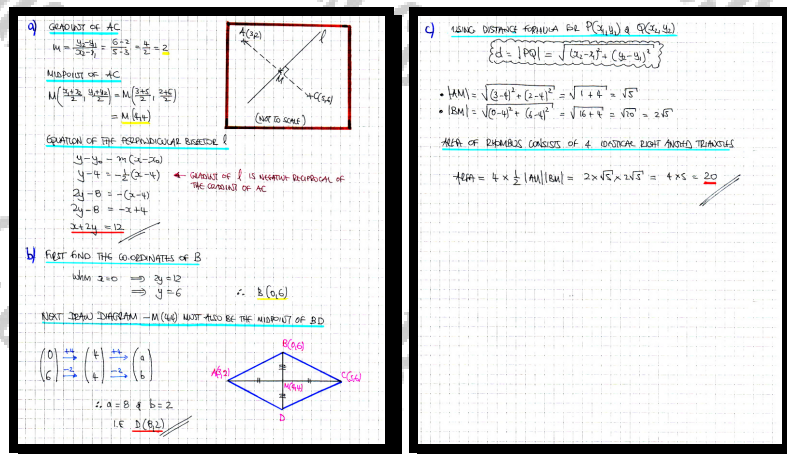 a) GRADIENT OF AC
m = (y₂-y₁)/(x₂-x₁) = (6-2)/(5-3) = 4/2 = 2
MIDPOINT OF AC
M((x₁+x₂)/2, (y₁+y₂)/2) = M((3+5)/2, (2+6)/2)
= M(4,4)
A(3,2)
l
M
C(5,6)
(NOT TO SCALE)
EQUATION OF THE PERPENDICULAR BISECTOR l
y-y₀ = m(x-x₀)
y-4 = -½(x-4) ← GRADIENT OF l IS NEGATIVE RECIPROCAL OF
THE GRADIENT OF AC
2y-8 = -(x-4)
2y-8 = -x+4
x+2y = 12
b) FIRST FIND THE CO-ORDINATES OF B
When x=0 ⇒ 2y=12
⇒ y=6 ∴ B(0,6)
NEXT DRAW DIAGRAM - M(4,4) MUST ALSO BE THE MIDPOINT OF BD
(0 6) +4 → -2 → (4 4) +4 → -2 → (a b)
∴ a=8 & b=2
I.E D(8,2)
B(0,6)
A(3,2)
M(4,4)
C(5,6)
D
c) USING DISTANCE FORMULA FOR P(x₁,y₁) & Q(x₂,y₂)
d = |PQ| = √((x₂-x₁)² + (y₂-y₁)²)
• |AM| = √((3-4)² + (2-4)²) = √(1+4) = √5
• |BM| = √((0-4)² + (6-4)²) = √(16+4) = √20 = 2√5
AREA OF RHOMBUS CONSISTS OF 4 IDENTICAL RIGHT ANGLED TRIANGLES
AREA = 4 × ½ |AM||BM| = 2×√5×2√5 = 4×5 = 20